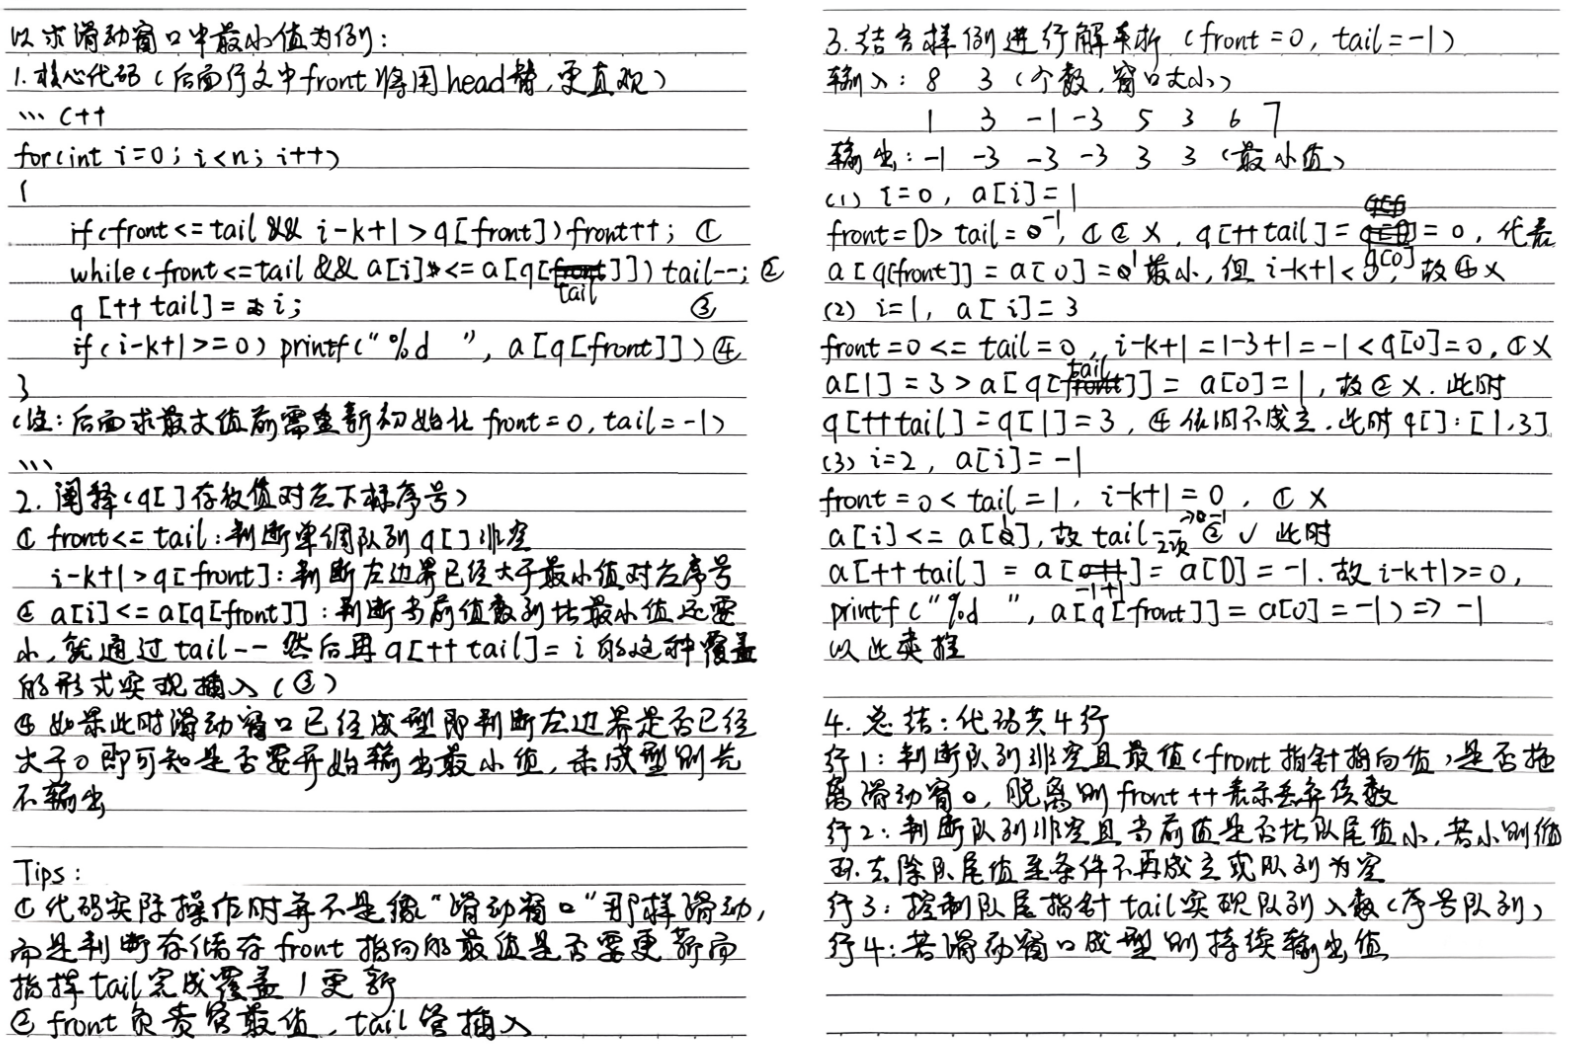 以求滑动窗口中最小值为例:
1.核心代码(后面行文中front将用head替,更直观)
... C++
for(int i=0; i<n; i++)
{
if(front<=tail && i-k+1>q[front])front++; ①
while(front<=tail && a[i]<=a[q[tail]])tail--; ②
q[++tail]=i; ③
if(i-k+1>=0)printf("%d ", a[q[front]])④
}
(注:后面求最大值前需重新初始化front=0,tail=-1)
、、、
2.阐释(q[]存放值对应下标序号)
① front<=tail:判断单调队列q[]非空
i-k+1>q[front]:判断左边界已经大于最小值对应序号
② a[i]<=a[q[front]]:判断当前值数列比最小值还要
小,就通过tail-- 然后再q[++tail]=i的这种覆盖
的形式实现插入(③)
④ 如果此时滑动窗口已经成型即判断左边界是否已经
大于0即可知是否要开始输出最小值,未成型则先
不输出
Tips:
① 代码实际操作时并不是像"滑动窗口"那样滑动,
而是判断存储在front指向的最值是否需要更新而
指挥tail完成覆盖/更新
② front负责管最值,tail管插入
3.结合样例进行解析(front=0,tail=-1)
输入: 8 3(个数,窗口大小)
1 3 -1 -3 5 3 6 7
输出:-1 -3 -3 -3 3 3(最小值)
(1) i=0, a[i]=1
front=0>tail=-1,①②×,q[++tail]=q[0]=0,代表
a[q[front]]=a[0]=1最小,但i-k+1<0,故④×
(2) i=1, a[i]=3
front=0<=tail=0,i-k+1=1-3+1=-1<q[0]=0,①×
a[1]=3>a[q[tail]]=a[0]=1,故②×.此时
q[++tail]=q[1]=3,④依旧不成立.此时q[]:[1,3]
(3) i=2, a[i]=-1
front=0<tail=1,i-k+1=0,①×
a[i]<=a[1],故tail-- 2次→0→-1 ②√ 此时
a[++tail]=a[-1+1]=a[0]=-1.故i-k+1>=0,
printf("%d ",a[q[front]]=a[0]=-1)=>-1
以此类推
4.总结:代码共4行
行1:判断队列非空且最值(front指针指向值)是否拖
离滑动窗口,脱离则front++表示丢弃该数
行2:判断队列非空且当前值是否比队尾值小,若小则循
环去除队尾值至条件不再成立或队列为空
行3:控制队尾指针tail实现队列入数(序号队列)
行4:若滑动窗口成型则持续输出值